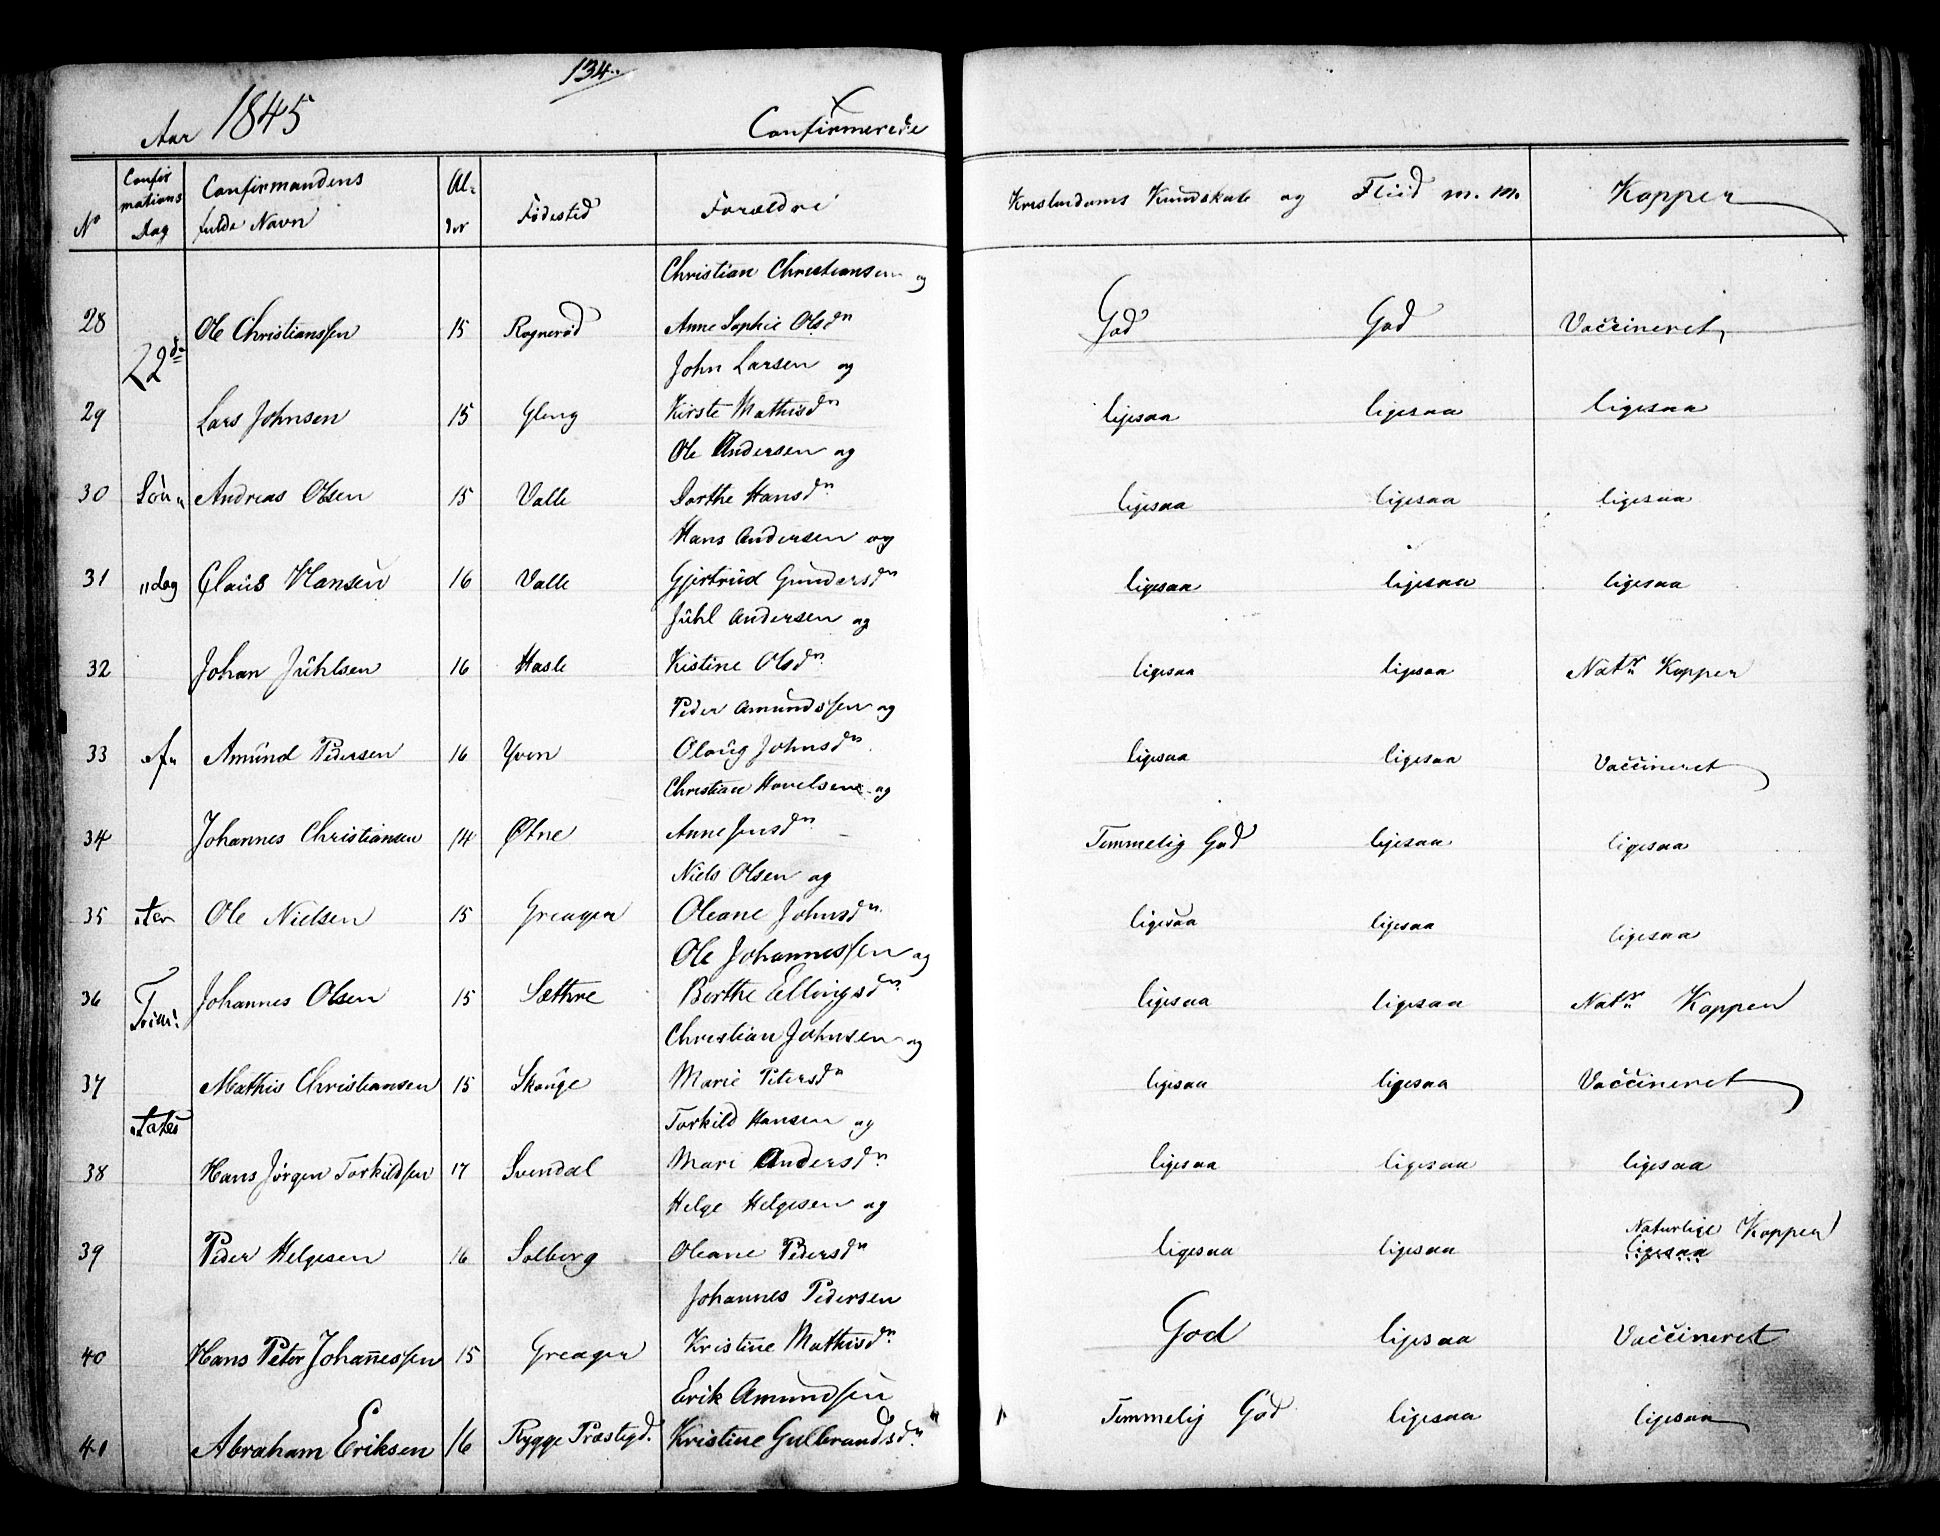 134
Aar 1845 Confirmerede
No Confirmations Dag Confirmandens fulde Navn Alder Fødested Forældre Kristendoms Kundskab og Fliid m. m. Kopper
Christian Christiansen og
28 Ole Christianssen 15 Rognerød Anne Sophie Olsdn God God Vaccineret
22de
John Larsen og
29 Lars Johnsen 15 Gleng Kirste Mathisdn ligesaa ligesaa ligesaa
Ole Andersen og
30 Søn„ Andreas Olsen 15 Valle Dorthe Hansdn ligesaa ligesaa ligesaa
Hans Andersen og
31 „dag Claus Hansen 16 Valle Gjertrud Gundersdn ligesaa ligesaa ligesaa
Juhl Andersen og
32 Johan Juhlsen 16 Hasle Kistine Olsdn ligesaa ligesaa Natr Kopper
Peder Amundssen og
33 ef„ Amund Pedersen 16 Yven Olaug Johnsdn ligesaa ligesaa Vaccineret
Christian Hovelsen og
34 Johannes Christiansen 14 Øtne Anne Jensdn Temmelig God ligesaa ligesaa
Niels Olsen og
35 ter Ole Nielsen 15 Greager Oleane Johnsdn ligesaa ligesaa ligesaa
Ole Johannessen og
36 Trini Johannes Olsen 15 Sæthre Berthe Ellingsdn ligesaa ligesaa Natr Kopper
Christian Johnsen og
37 Mathis Christiansen 15 Skouge Marie Petersdn ligesaa ligesaa Vaccineret
tates
Torkild Hansen og
38 Hans Jørgen Torkildsen 17 Svendal Mari Andersdn ligesaa ligesaa ligesaa
Helge Helgesen og
Naturlige Kopper
39 Peder Helgesen 16 Solberg Oleane Pedersdn ligesaa ligesaa ligesaa
Johannes Pedersen
40 Hans Peter Johannessen 15 Greager Kristine Mathisdn God ligesaa Vaccineret
Erik Amundsen
41 Abraham Eriksen 16 Rygge Præstegd. Kristine Gulbrandsdn Temmelig God ligesaa ligesaa